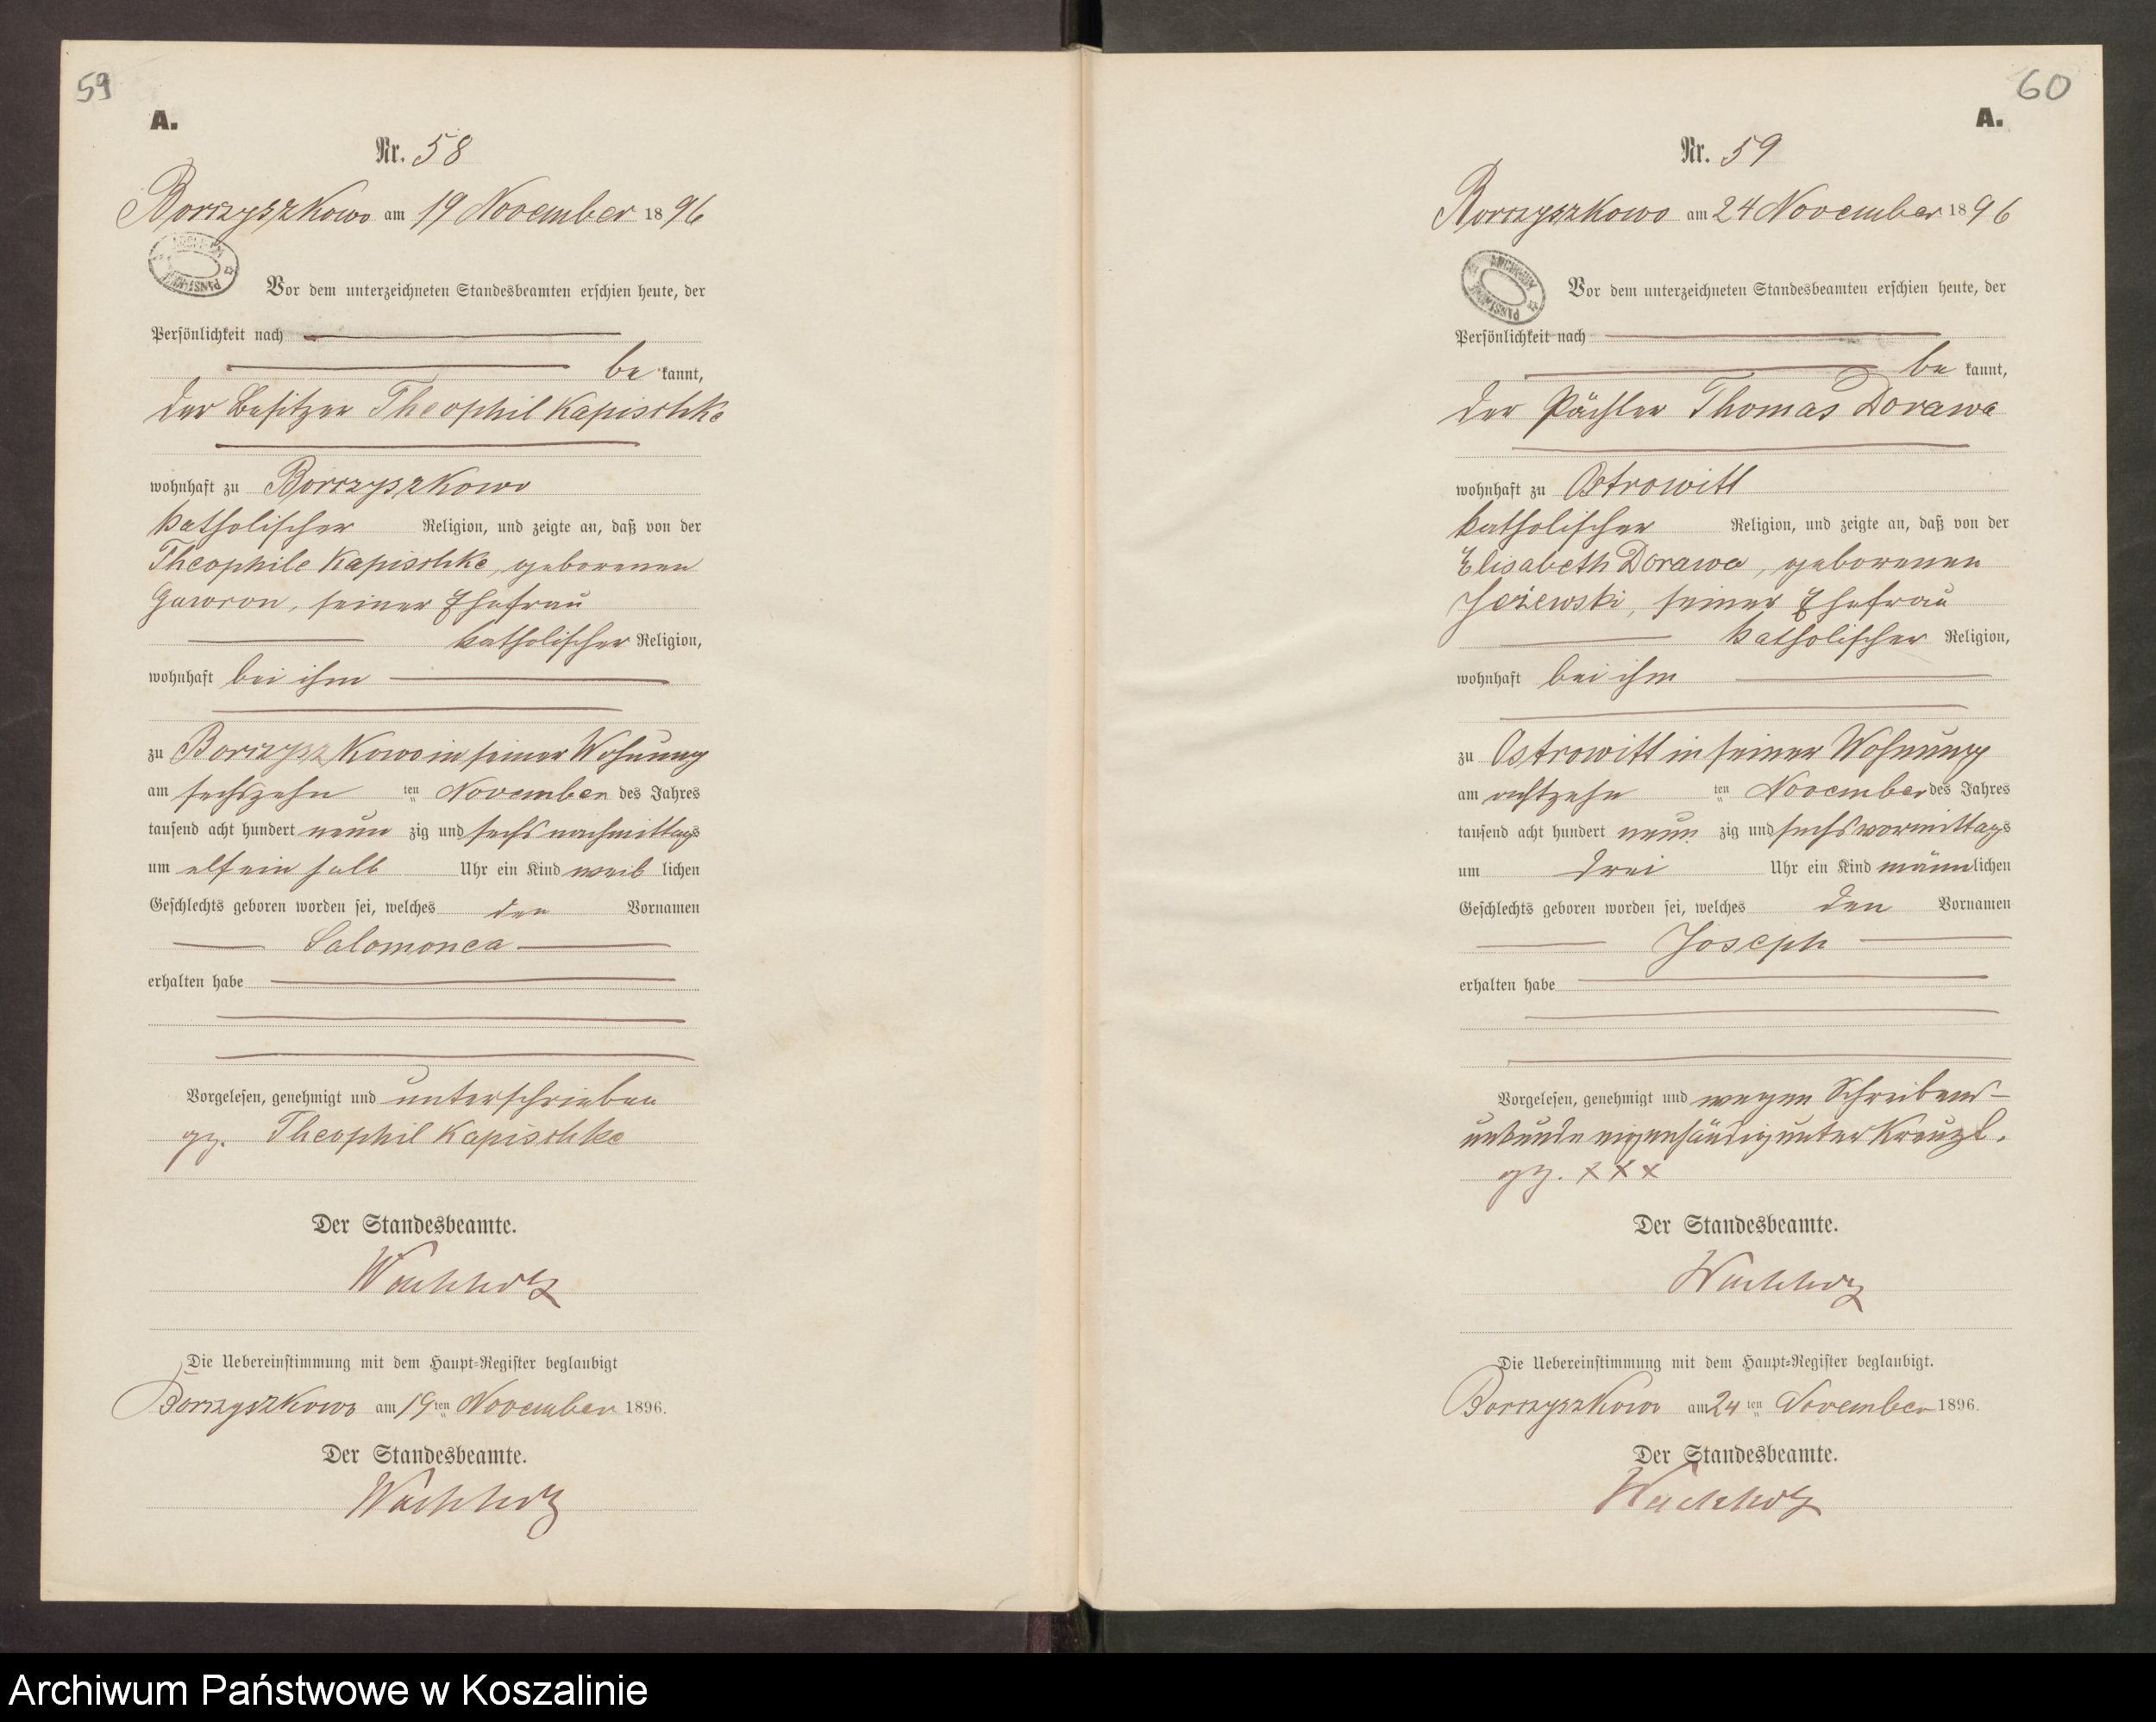 59
A.
Nr. 58
Borrzyszkowo am 19 November 1896
ARCHIWUM PAŃSTWOWE
Vor dem unterzeichneten Standesbeamten erschien heute, der
Persönlichkeit nach
be kannt,
der Besitzer Theophil Kapischke
wohnhaft zu Borrzyszkowo
katholischer Religion, und zeigte an, daß von der
Theophile Kapischke, geborenen
Gawron, seiner Ehefrau
katholischer Religion,
wohnhaft bei ihm
zu Borrzyszkowo in seiner Wohnung
am sechszehn ten November des Jahres
tausend acht hundert neun zig und sechs nachmittags
um elf ein halb Uhr ein Kind weib lichen
Geschlechts geboren worden sei, welches den Vornamen
Salomonea
erhalten habe
Vorgelesen, genehmigt und unterschrieben
gz. Theophil Kapischke
Der Standesbeamte.
Wachholz
Die Uebereinstimmung mit dem Haupt-Register beglaubigt
Borrzyszkowo am 19 ten November 1896.
Der Standesbeamte.
Wachholz
60
A.
Nr. 59
Borrzyszkowo am 24 November 1896
ARCHIWUM PAŃSTWOWE
Vor dem unterzeichneten Standesbeamten erschien heute, der
Persönlichkeit nach
be kannt,
der Pächter Thomas Dorawa
wohnhaft zu Ostrowitt
katholischer Religion, und zeigte an, daß von der
Elisabeth Dorawa, geborenen
Jeżewski, seiner Ehefrau
katholischer Religion,
wohnhaft bei ihm
zu Ostrowitt in seiner Wohnung
am achtzehn ten November des Jahres
tausend acht hundert neun zig und sechs vormittags
um drei Uhr ein Kind männlichen
Geschlechts geboren worden sei, welches den Vornamen
Joseph
erhalten habe
Vorgelesen, genehmigt und wegen Schreibens-
unkunde eigenhändig unterkreuzt.
gz. xxx
Der Standesbeamte.
Wachholz
Die Uebereinstimmung mit dem Haupt-Register beglaubigt.
Borrzyszkowo am 24 ten November 1896.
Der Standesbeamte.
Wachholz
Archiwum Państwowe w Koszalinie